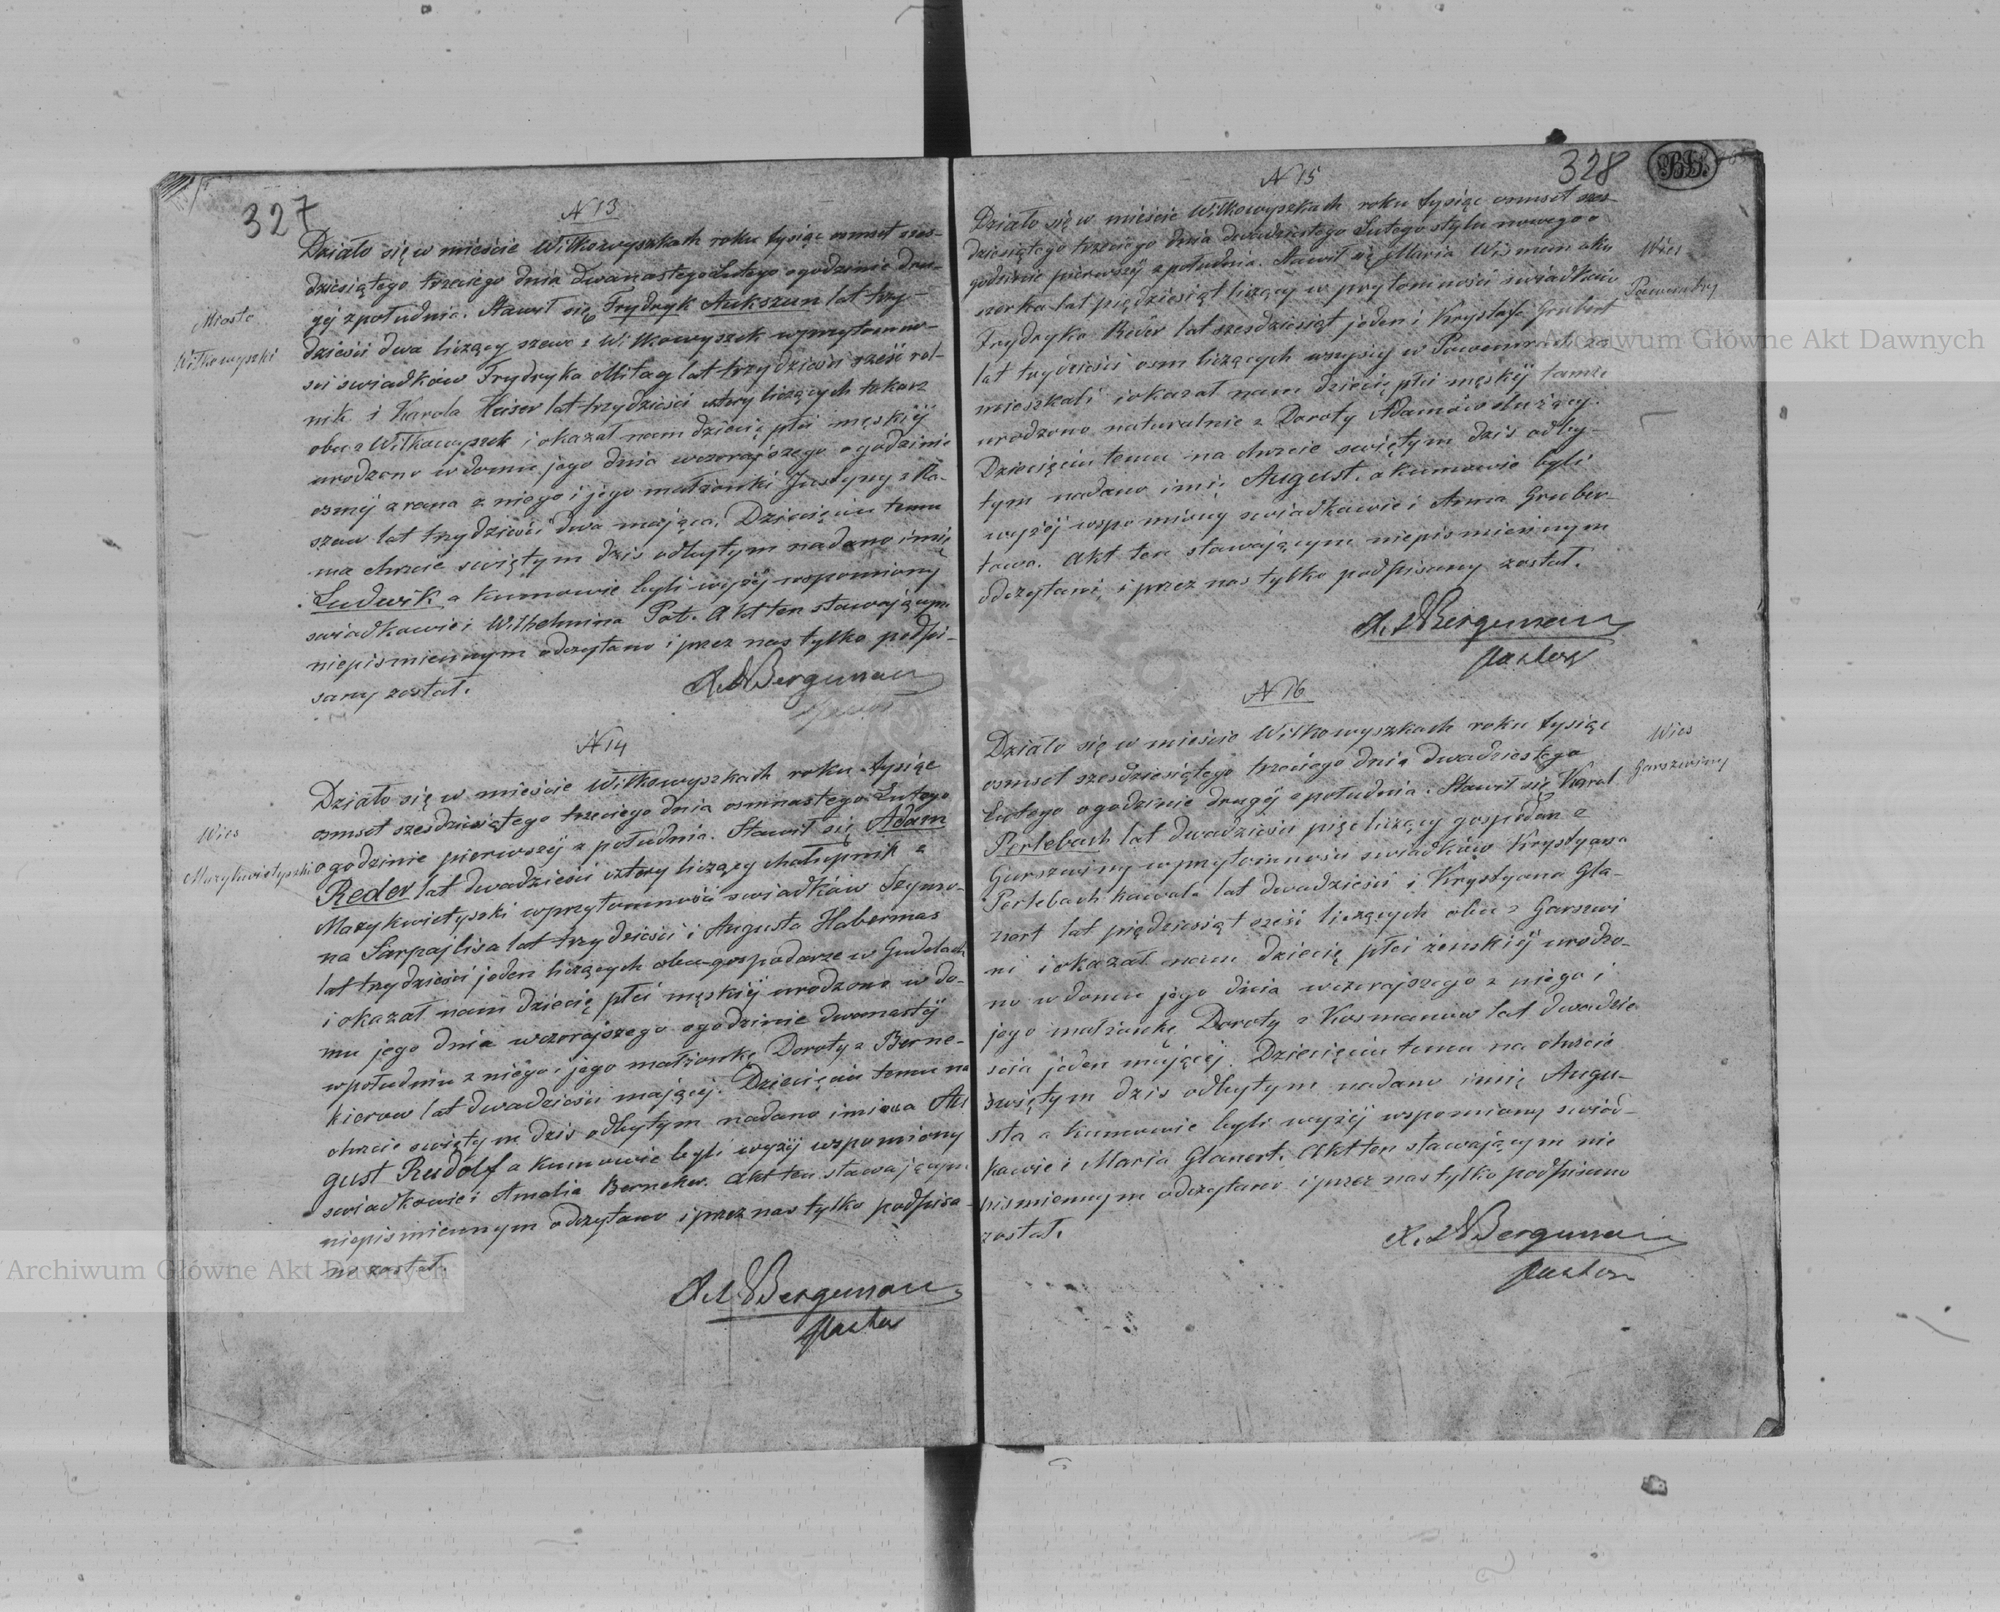 327
N 13
Miasto
Wiłkowyszki
Działo się w mieście Wiłkowyszkach roku tysiąc osmset szes-
dziesiątego trzeciego dnia dwunastego Lutego o godzinie dru-
giej z południa. Stawił się Frydryk Aukszun lat trzy-
dzieści dwa liczący szewc z Wiłkowyszek w przytomno-
ści świadków Frydryka Mitag lat trzydzieści sześć rol-
nik i Karola Kaiser lat trzydzieści cztery liczących tokarz
obu z Wiłkowyszek i okazał nam dziecię płci męskiéj
urodzone w domu jego dnia wczorajszego o godzinie
osméj z rana z niego i jego małżonki Justyny z Ra-
szaw lat trzydzieści dwa mająca. Dziecięciu temu
na chrzcie swiętym dzis odbytym nadano imię
Ludwik a kumowie byli wyżéj wspomniony
swiadkowie i Wilhelmina Pat. Akt ten stawającym
niepismiennym odczytano i przez nas tylko podpi-
sany został.
K. L. Bergman
N 14
Wies
Mazykwietyszki
Działo się w mieście Wiłkowyszkach roku tysiąc
osmset szesdziesiątego trzeciego dnia osmnastego Lutego
o godzinie pierwszéj z południa. Stawił się Adam
Reder lat dwadzieścia cztery liczący chałupnik z
Mazykwietyszki w przytomności swiadków Szymo-
na Sarpajlisa lat trzydzieści i Augusta Habermas
lat trzydzieści jeden liczących obu gospodarze w Gudelach
i okazał nam dziecię płci męskiéj urodzone w do-
mu jego dnia wczorajszego o godzinie dwunastéj
w południu z niego i jego małżonkę Doroty z Berne-
kierow lat dwadzieścia mającéj. Dziecięciu temu na
chrzcie swiętym dzis odbytym nadano imiona Au
gust Rudolf a kumowie byli wyżéj wspomniony
swiadkowie i Amalia Berneker. Akt ten stawającym
niepismiennym odczytano i przez nas tylko podpisa-
no został.
K. L. Bergman
Pastor
328
BG.
N 15
Wies
Pawembry
Działo się w mieście Wiłkowyszkach roku tysiąc osmset szes-
dziesiątego trzeciego dnia dwudziestego Lutego stylu nowego o
godzinie pierwszéj z południa. Stawił się Maria Wisman aku
szerka lat pięćdziesiąt liczący w przytomności swiadków
Frydryka Reder lat szesdziesiąt jeden i Krystofa Grubert
lat trzydzieści osm liczących wszyscy w Pawembrach za
mieszkali i okazał nam dziecię płci męskiéj tamże
urodzone naturalnie z Doroty Adamów służący.
Dziecięciu temu na chrzcie swiętym dzis odby-
tym nadano imię August, a kumowie byli
wyżéj wspomniony swiadkowie i Anna Gruber-
towa. Akt ten stawającym niepismiennym
odczytano i przez nas tylko podpisany został.
K. L. Bergman
Pastor
N 16
Wies
Garszwiny
Działo się w mieście Wiłkowyszkach roku tysiąc
osmset szesdziesiątego trzeciego dnia dwudziestego
Lutego o godzinie drugéj z południa. Stawił się Karol
Perlebach lat dwadzieścia pięć liczący gospodarz z
Garszwiny w przytomności swiadków Krystyana
Perlebach kawal. lat dwadzieści i Krystyana Gla-
nert lat pięćdziesiąt sześć liczących obu z Garszwi
ni i okazał nam dziecię płci żenskiéj urodzo-
no w domu jego dnia wczorajszego z niego i
jego małżonkę Doroty z Kosmanow lat dwadzie
scia jeden mającéj. Dziecięciu temu na chrzcie
swiętym dzis odbytym nadano imię Augu-
sta a kumowie byli wyżéj wspomniony swiad-
kowie i Maria Glanert. Akt ten stawającym nie
pismiennym odczytano i przez nas tylko podpisano
został.
K. L. Bergman
Pastor
Archiwum Główne Akt Dawnych
Archiwum Główne Akt Dawnych